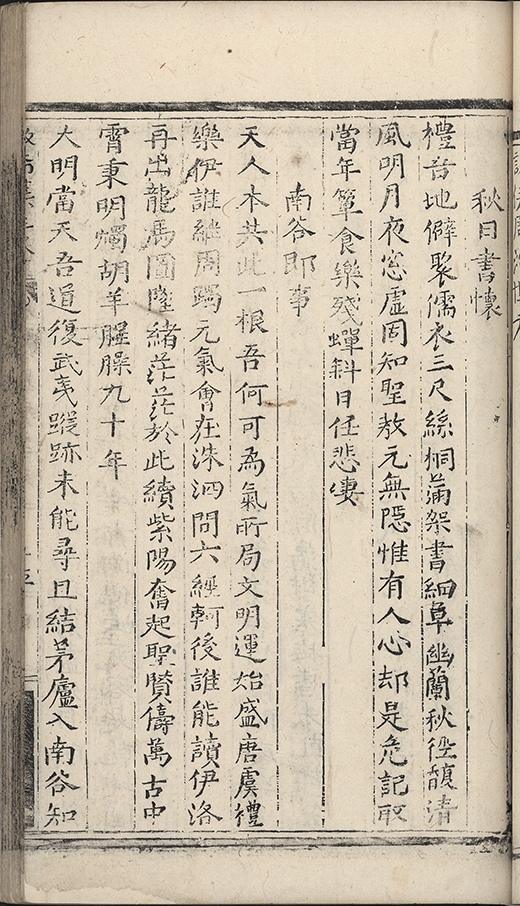 秋日書懷
禮苔地僻聚儒衣三尺絲桐滿架書細草幽蘭秋徑馥清
風明月夜窓虛固知聖教元無隱惟有人心却是危記取
當年簞食樂殘蟬斜日任悲凄
南谷即事
天人本共此一根吾何可爲氣所局文明運始盛唐虞禮
樂伊誰繼周躅元氣會在洙泗問六經軻後誰能讀伊洛
再出龍馬圖墜緒茫茫於此續紫陽奮起聖賢儔萬古中
霄秉明燭胡羊腥臊九十年
大明當天吾道復武夷蹤跡未能尋且結茅廬入南谷知